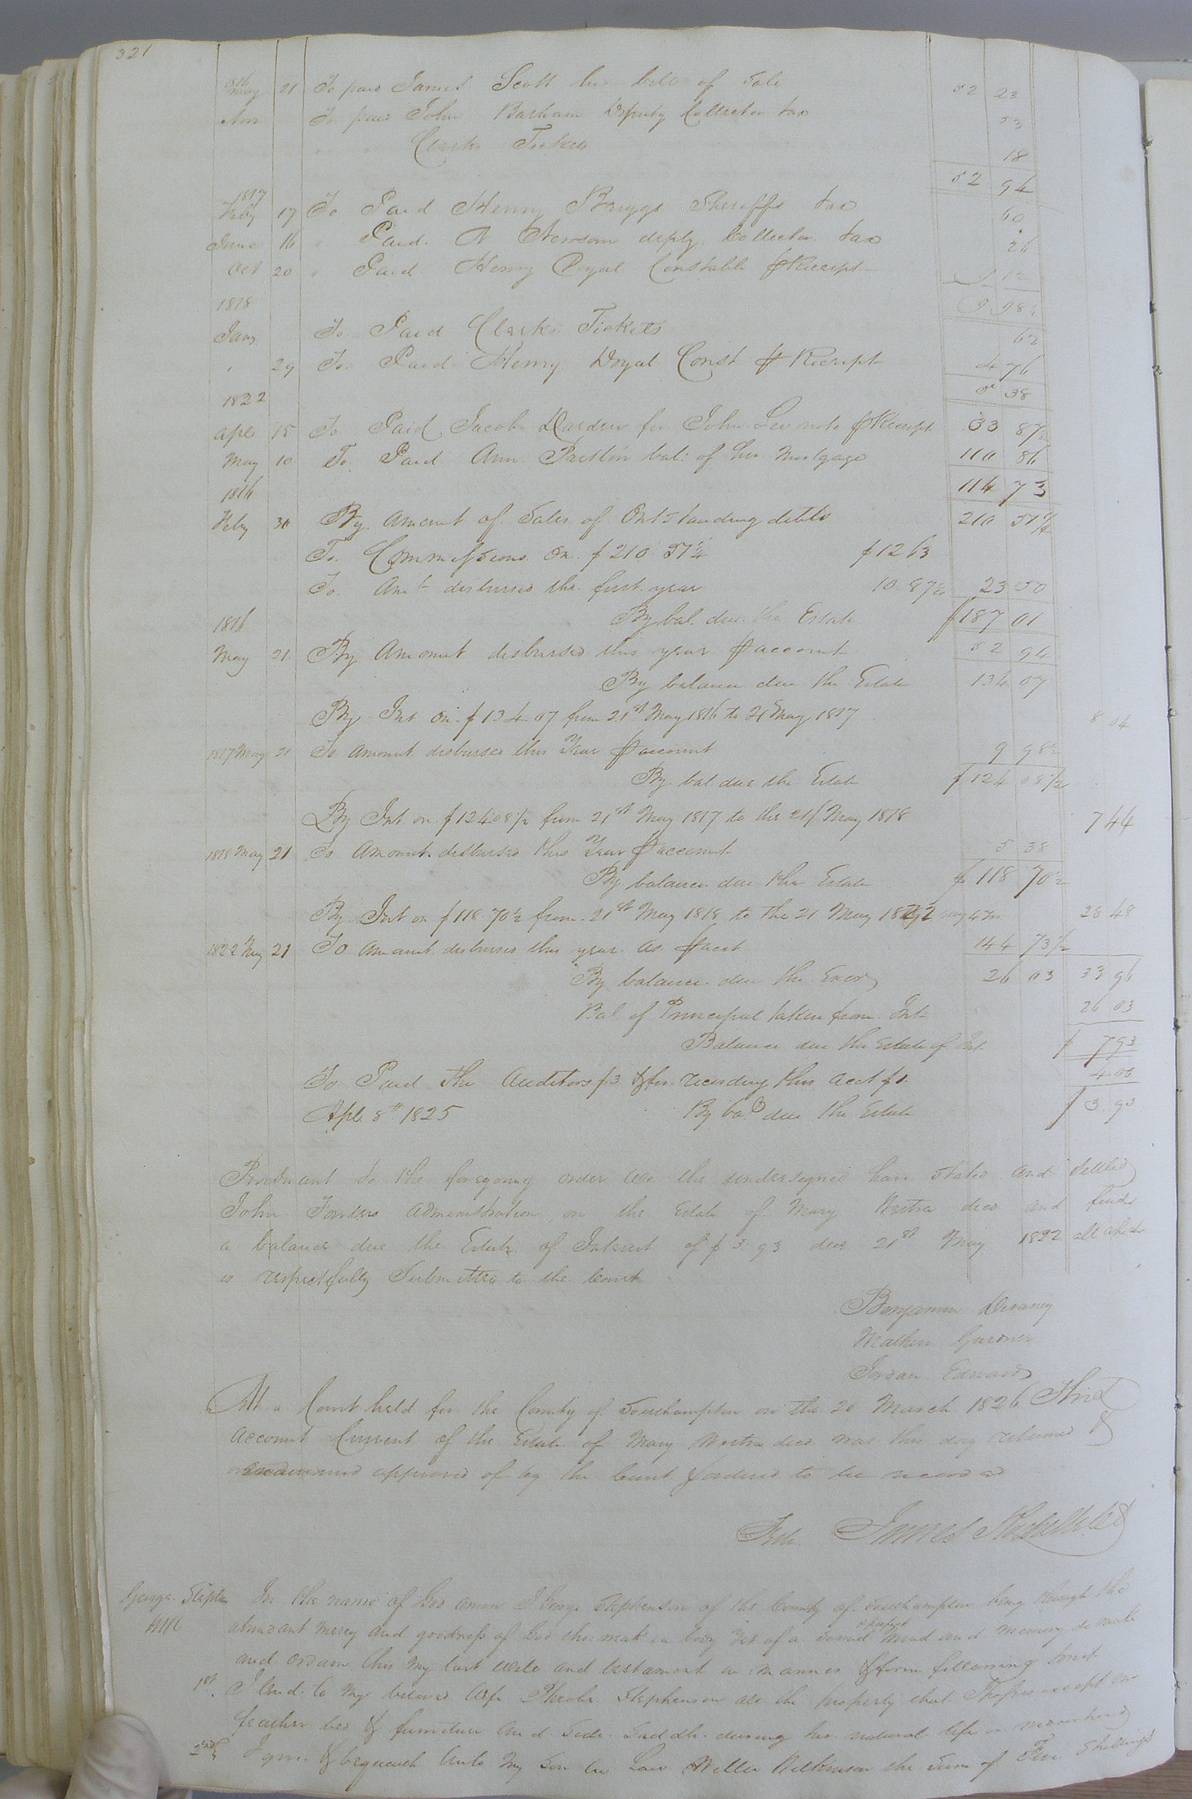 321
May 21 To paid James Scott his bill of Sale 52 23
Nov To paid John Barham Deputy Collector tax 53
Clerks Tickets 18
52 94
1817
Feby 17 To Paid Henry Briggs Sheriffs tax 60
June 16 " Paid N Newsom deply Collector tax 26
Oct 20 " Paid Henry Doyal Constable Receipt
9 98½
1818
Jany To Paid Clerks Tickets 62
" 29 To Paid Henry Doyal Const Receipt 4 76
5 38
1822
Apl 15 To Paid Jacob Darden for John note Receipt 33 87½
May 10 To Paid Ann Preston bal: of his Mortgage 110 86
1816 114 73
Feby 30 By Amount of Sales of Outstanding debts 210 51¼
To Commissions on $210 51¼ $12 63
To Amt disbursed the first year 10 87½ 23 50
1816 By bal due the Estate $187 01
May 21 By Amount disbursed this year account 52 94
By balance due the Estate 134 07
By Int on $134 07 from 21st May 1816 to 21 May 1817 8 04
1817 May 21 To Amount disbursed this Year account 9 98½
By bal due the Estate $124 08½
By Int on $124 08½ from 21st May 1817 to the 21st May 1818 7 44
1818 May 21 To Amount disbursed this Year account 5 38
By balance due the Estate $118 70½
By Int on $118 70½ from 21st May 1818 to the 21 May 1822 28 48
1822 May 21 To Amount disbursed this year as acct 144 73½
By balance due the Exor 26 03 33 96
Bal of Principal taken from Int 26 03
Balance due the Estate of Int $ 7 93
To Paid the Auditors $3 & for recording this acct $1 4 00
Apl 8th 1825 By bal due the Estate $ 3 93
Pursuant to the foregoing order we the undersigned have Stated and Settled
John administration on the Estate of Mary decd and finds
a balance due the Estate of Interest of $3 93 due 21st May 1822 all which
is respectfully Submitted to the Court
Benjamin Devany
Mathew Gardner
Jordan Edwards
At a Court held for the County of Southampton on the 20 March 1826 This
Account Current of the Estate of Mary decd was this day returned &
examined approved of by the Court & ordered to be record
Teste James Rochelle
George Stephen In the name of God Amen I George Stephenson of the County of Southampton being through the
Will abundant mercy and goodness of God tho weak in body yet of a Sound & perfect mind and memory do make
and ordain this my last will and testament in manner & form following
1st I lend to my beloved wife Phoebe Stephenson all the property that I possess except one
feather bed & furniture and Side Saddle during her natural life or
2nd I give & bequeath unto my Son in Law Willie Wilkinson the Sum of Five Shillings